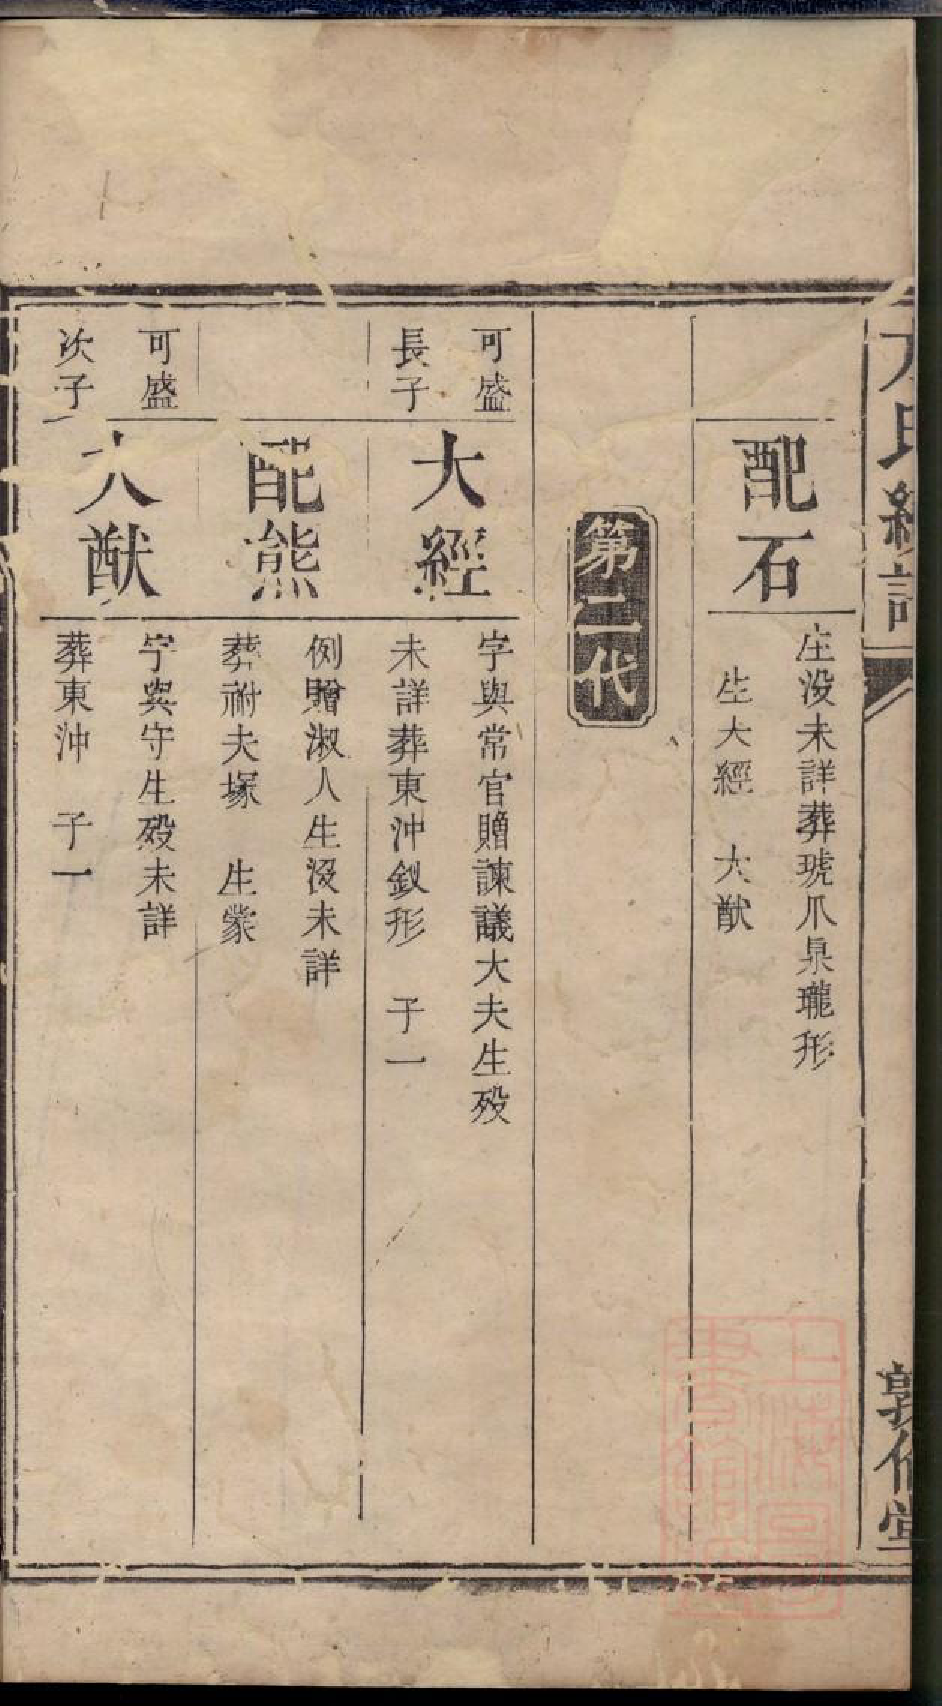 配石
生没未詳葬琥爪泉瓏形
生大經　大猷
第二代
可盛
長子
大經
字與常官贈諫議大夫生殁
未詳葬東沖釵形　子一
配熊
例贈淑人生没未詳
葬祔夫塚　生蒙
可盛
次子
大猷
字與守生殁未詳
葬東沖　子一
敦倫堂